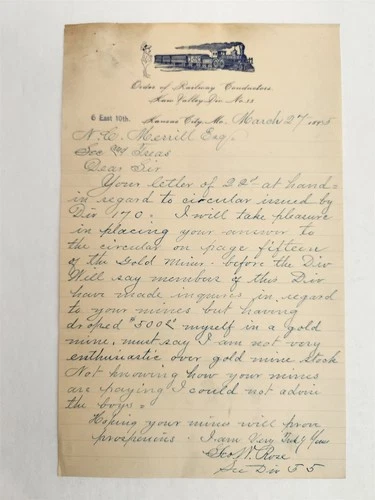 Order of Railway Conductors
Kaw Valley Div No. 55
6 East 10th. Kansas City, Mo. March 27 1895
N. C. Merrill Esq.
Sec & Treas
Dear Sir
Your letter of 22d at hand =
in regard to circular issued by
Div 170. I will take pleasure
in placing your answer to
the circular on page fifteen
of the Gold Miner. before the Div
Will say members of this Div
have made inquires in regard
to your mines but having
droped "500" myself in a gold
mine, must say I am not very
enthuniastic over gold mine Stock
Not knowing how your mines
are paying I could not advise
the boys =
Hoping your mines will prove
prosperious. I am Very Truly Yours
Geo W. Rose
Sec Div 55